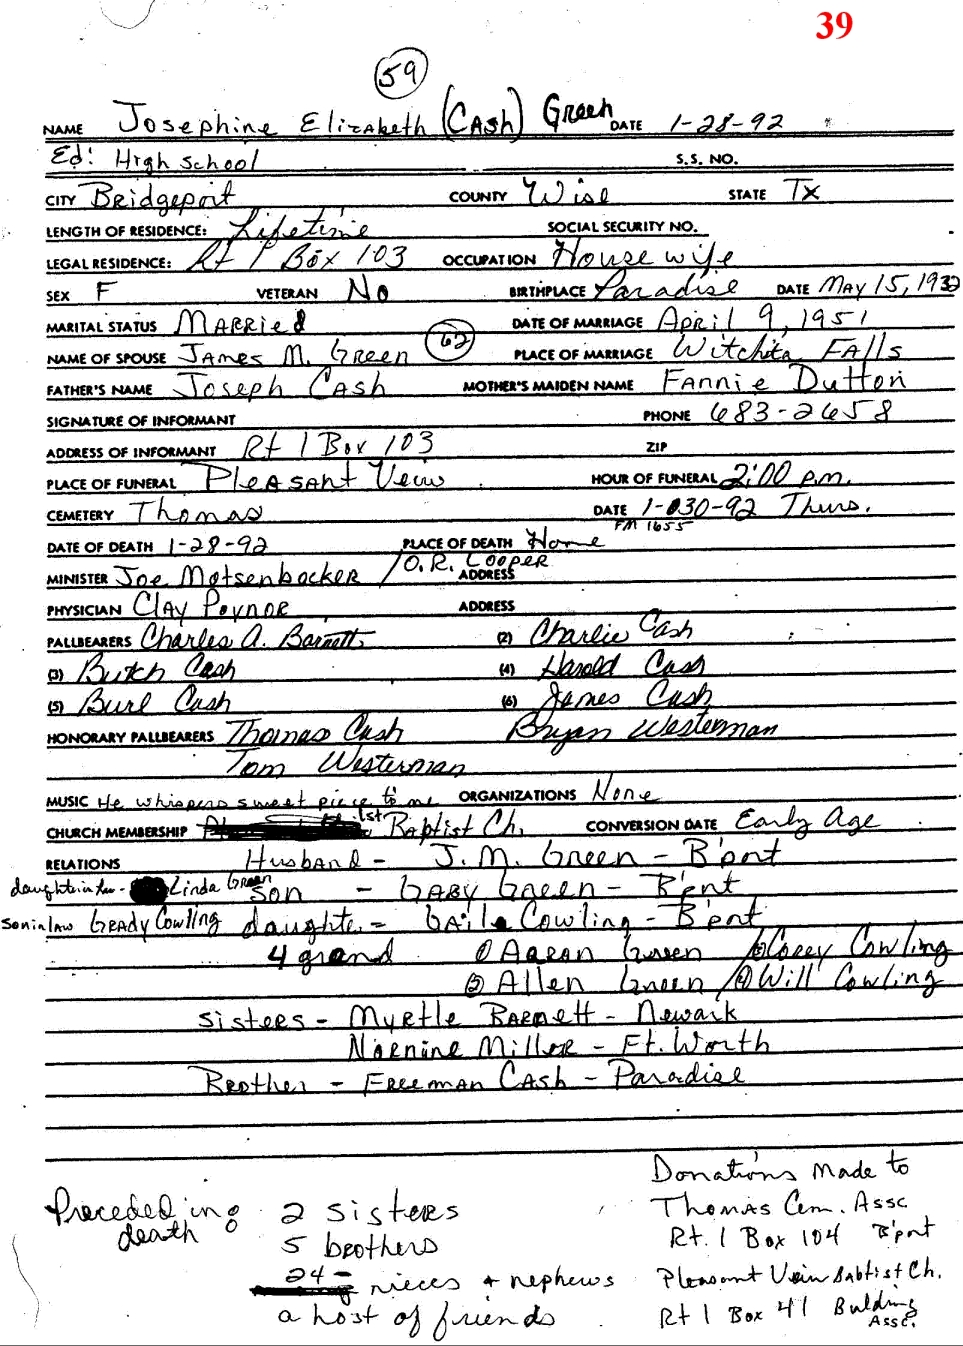 39
59
NAME Josephine Elizabeth (Cash) Green DATE 1-28-92
Ed: High School S.S. NO.
CITY Bridgeport COUNTY Wise STATE Tx
LENGTH OF RESIDENCE: Lifetime SOCIAL SECURITY NO.
LEGAL RESIDENCE: Rt 1 Box 103 OCCUPATION Housewife
SEX F VETERAN No BIRTHPLACE Paradise DATE May 15, 1932
MARITAL STATUS Married DATE OF MARRIAGE April 9, 1951
NAME OF SPOUSE James M. Green 62 PLACE OF MARRIAGE Witchita Falls
FATHER'S NAME Joseph Cash MOTHER'S MAIDEN NAME Fannie Dutton
SIGNATURE OF INFORMANT PHONE 683-2658
ADDRESS OF INFORMANT Rt 1 Box 103 ZIP
PLACE OF FUNERAL Pleasant Veiw HOUR OF FUNERAL 2:00 p.m.
CEMETERY Thomas DATE 1-30-92 Thurs.
FM 1655
DATE OF DEATH 1-28-92 PLACE OF DEATH Home
MINISTER Joe Motsenbocker / O.R. Cooper ADDRESS
PHYSICIAN Clay Poynor ADDRESS
PALLBEARERS Charles A. Barnett (2) Charlie Cash
(3) Butch Cash (4) Harold Cash
(5) Burl Cash (6) James Cash
HONORARY PALLBEARERS Thomas Cash Bryan Westerman
Tom Westerman
MUSIC He whispers sweet piece to me ORGANIZATIONS None
CHURCH MEMBERSHIP 1st Baptist Ch. CONVERSION DATE Early Age
RELATIONS Husband - J.M. Green - B'port
daughterinlaw - Linda Green son - Gary Green - B'port
soninlaw Grady Cowling daughter - Gaile Cowling - B'port
4 grand ① Aaron Green / ③ Corey Cowling
② Allen Green / ④ Will Cowling
Sisters - Myrtle Barnett - Newark
Nornine Miller - Ft. Worth
Brother - Freeman Cash - Paradise
Preceded in death
2 sisters
5 brothers
24 - nieces + nephews
a host of friends
Donations Made to
Thomas Cem. Assc
Rt. 1 Box 104 B'port
Pleasant Veiw Babtist Ch.
Rt 1 Box 41 Building Assc.